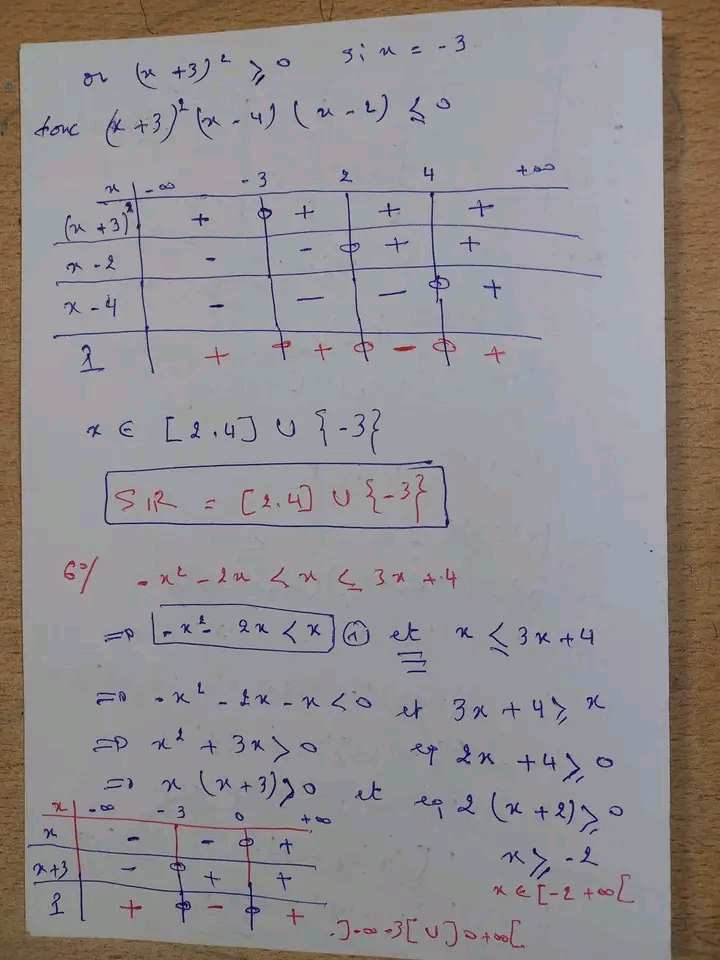 or (x+3)² ⩾ 0 si x = -3
donc (x+3)² (x-4) (x-2) ⩽ 0
x -∞ -3 2 4 +∞
(x+3)² + 0 + + +
x-2 - - 0 + +
x-4 - - - 0 +
+ 0 + 0 - 0 +
x ∈ [2.4] ∪ {-3}
SIR = [2.4] ∪ {-3}
6°/ -x² - 2x < x ⩽ 3x + 4
⇒ -x² - 2x < x ① et x ⩽ 3x+4
⇒ -x² - 2x - x < 0 et 3x + 4 ⩾ x
⇒ x² + 3x > 0 eq 2x + 4 ⩾ 0
⇒ x (x+3) > 0 et eq 2 (x+2) ⩾ 0
x -∞ -3 0 +∞
x - - 0 +
x+3 - 0 + +
+ 0 - 0 +
x ⩾ -2
x ∈ [-2 +∞[
]-∞ -3[ ∪ ]0 +∞[